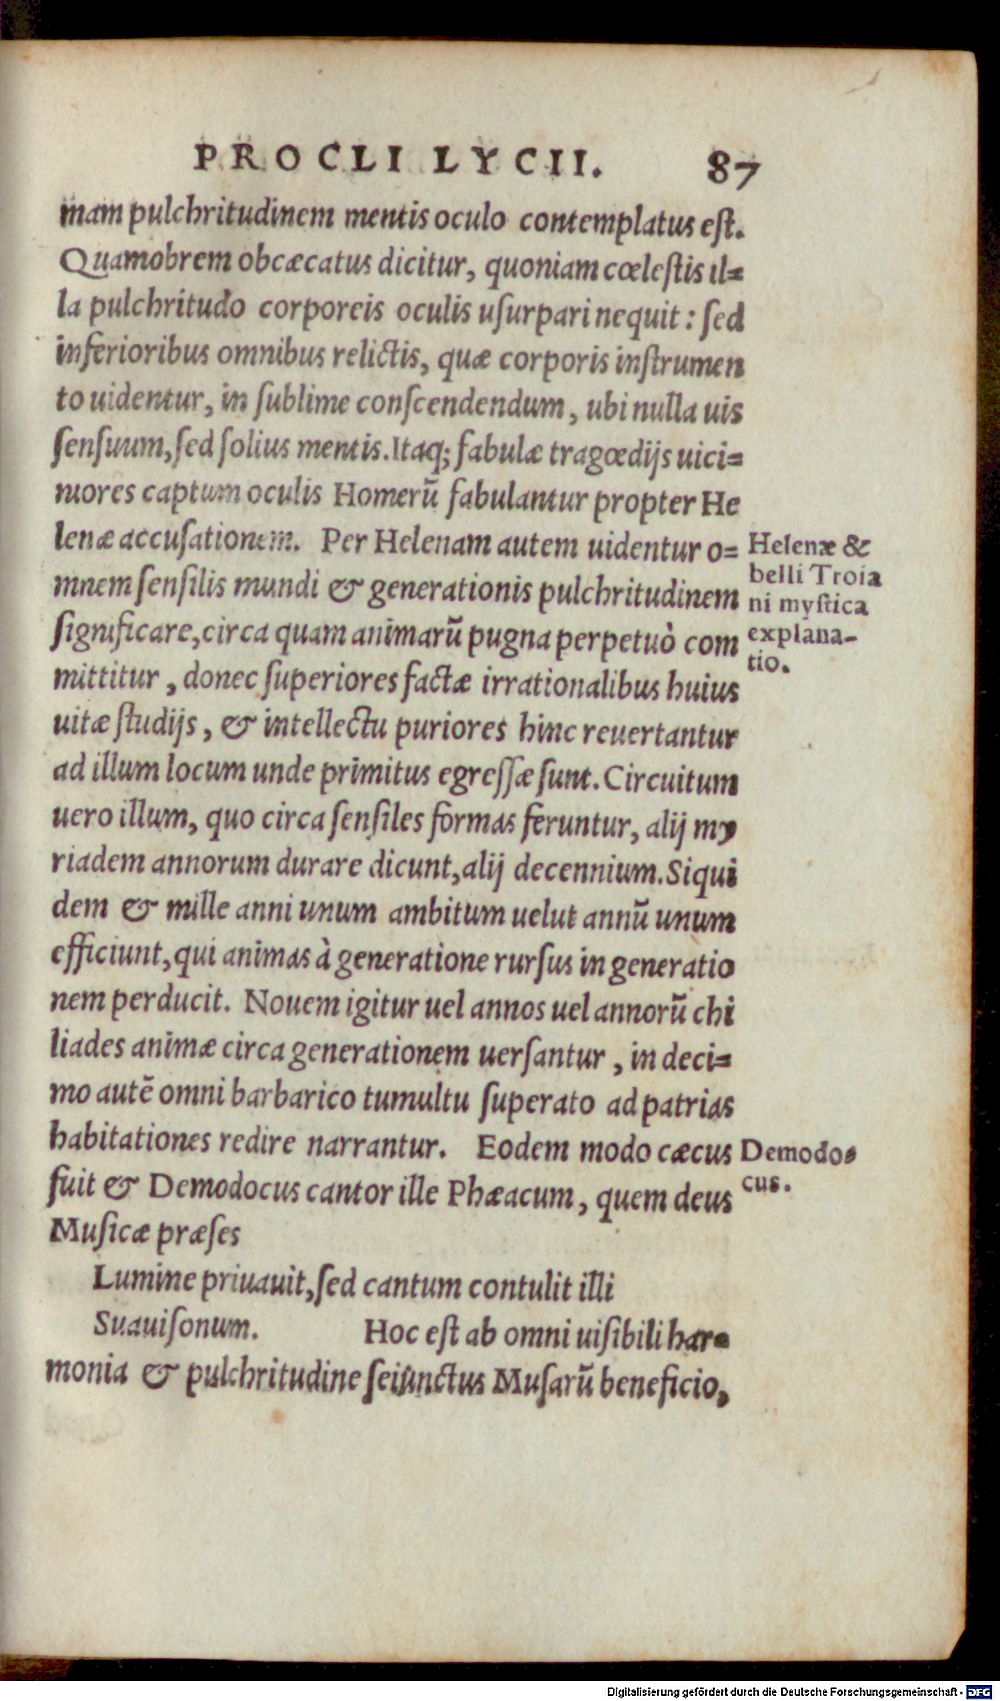 PROCLI LYCII. 87
mam pulchritudinem mentis oculo contemplatus est.
Quamobrem obcæcatus dicitur, quoniam cœlestis il=
la pulchritudo corporeis oculis usurpari nequit: sed
inferioribus omnibus relictis, quæ corporis instrumen
to uidentur, in sublime conscendendum, ubi nulla uis
sensuum, sed solius mentis. Itaq; fabulæ tragœdijs uici=
niores captum oculis Homerū fabulantur propter He
lenæ accusationem. Per Helenam autem uidentur o=
mnem sensilis mundi & generationis pulchritudinem
significare, circa quam animarū pugna perpetuò com
mittitur, donec superiores factæ irrationalibus huius
uitæ studijs, & intellectu puriores hinc reuertantur
ad illum locum unde primitus egressæ sunt. Circuitum
uero illum, quo circa sensiles formas feruntur, alij my
riadem annorum durare dicunt, alij decennium. Siqui
dem & mille anni unum ambitum uelut annū unum
efficiunt, qui animas à generatione rursus in generatio
nem perducit. Nouem igitur uel annos uel annorū chi
liades animæ circa generationem uersantur, in deci=
mo autē omni barbarico tumultu superato ad patrias
habitationes redire narrantur. Eodem modo cæcus
fuit & Demodocus cantor ille Phæacum, quem deus
Musicæ præses
Lumine priuauit, sed cantum contulit illi
Suauisonum. Hoc est ab omni uisibili har=
monia & pulchritudine seiunctus Musarū beneficio,
Helenæ &
belli Troia
ni mystica
explana-
tio.
Demodo=
cus.
Digitalisierung gefördert durch die Deutsche Forschungsgemeinschaft - DFG